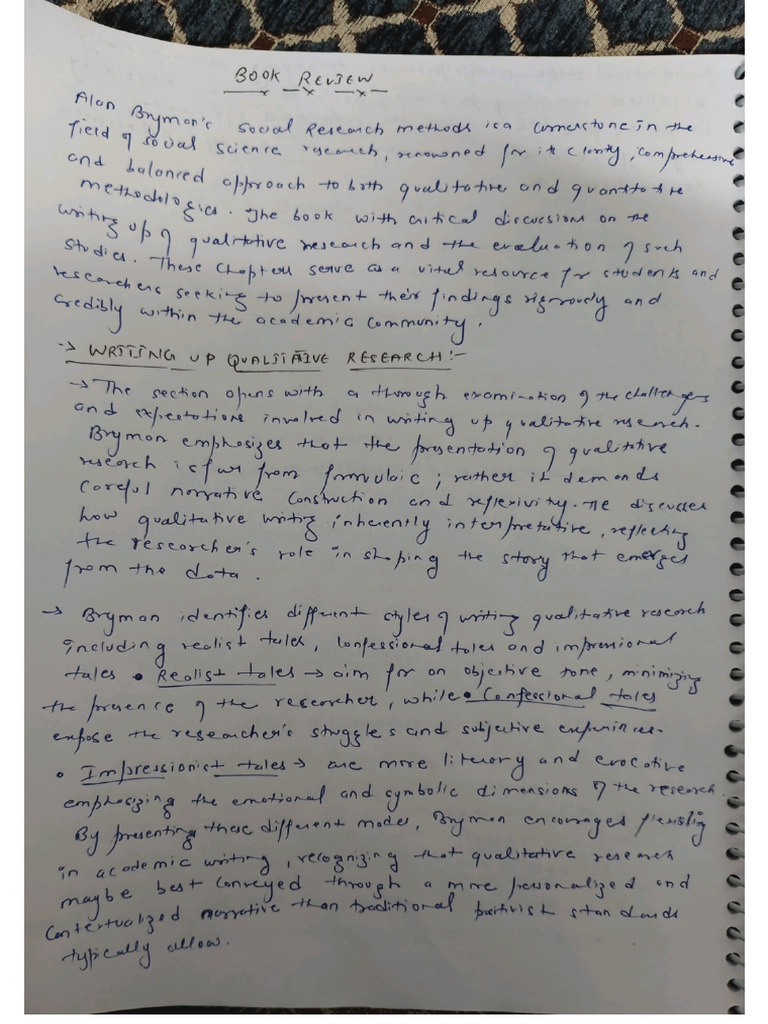 BOOK REVIEW
Alan Bryman's Social Research methods is a cornerstone in the
field of social science research, renowned for its clarity, comprehensive
and balanced approach to both qualitative and quantitative
methodologies. The book with critical discussions on the
writing up of qualitative research and the evaluation of such
studies. These chapters serve as a vital resource for students and
researchers seeking to present their findings rigorously and
credibly within the academic community.
-> WRITING UP QUALITATIVE RESEARCH:-
-> The section opens with a through examination of the challenges
and expectations involved in writing up qualitative research.
Bryman emphasizes that the presentation of qualitative
research is far from formulaic; rather it demands
careful narrative construction and reflexivity. He discusses
how qualitative writing inherently interpretative, reflecting
the researcher's role in shaping the story that emerges
from the data.
-> Bryman identifies different styles of writing qualitative research
including realist tales, confessional tales and impressional
tales • Realist tales -> aim for an objective tone, minimizing
the presence of the researcher, while • Confessional tales
expose the researcher's struggles and subjective experiences.
• Impressionist tales -> are more literary and evocative
emphasizing the emotional and symbolic dimensions of the research.
By presenting these different modes, Bryman encourages
in academic writing, recognizing that qualitative research
maybe best conveyed through a more personalized and
contextualized narrative than traditional standards
typically allow.